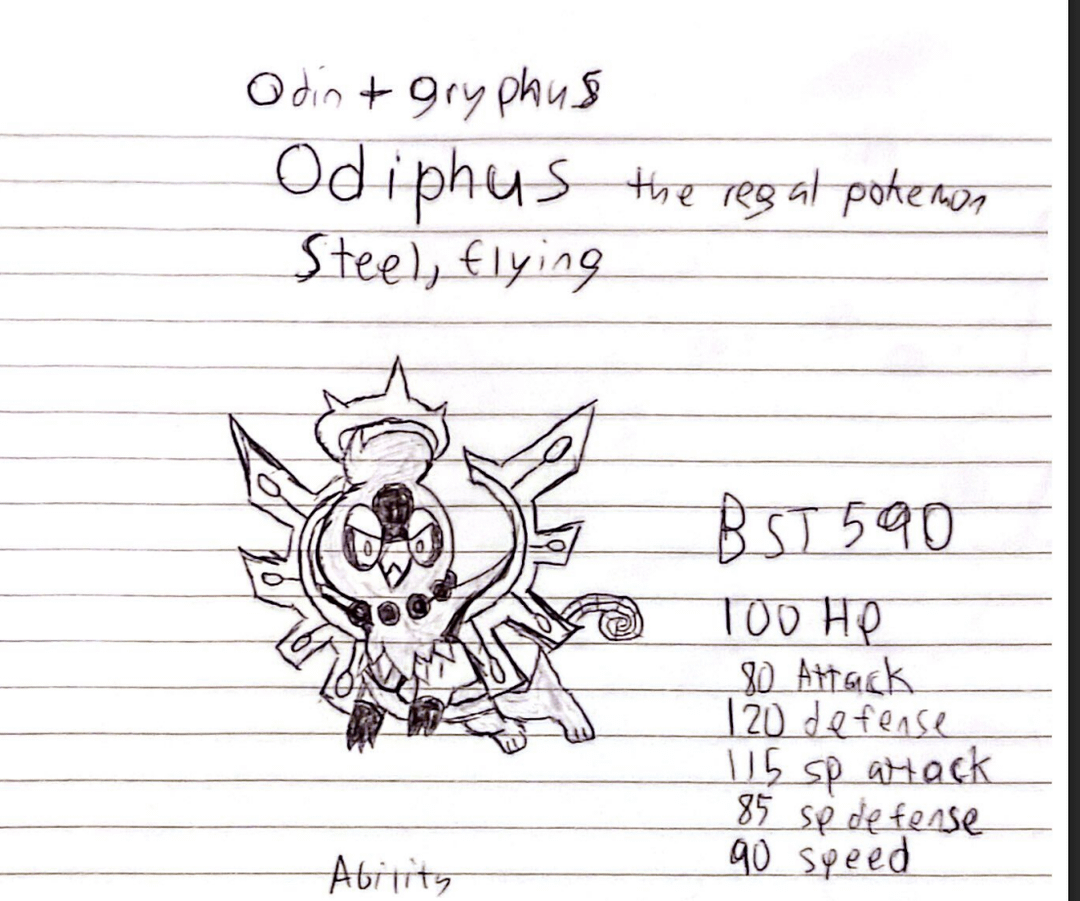 Odin + gryphus
Odiphus the regal pokemon
Steel, flying
BST 590
100 Hp
80 Attack
120 defense
115 sp attack
85 sp defense
90 speed
Ability